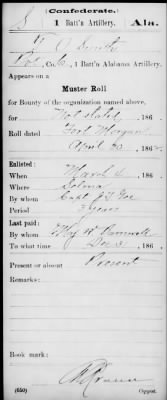 (Confederate.)
1 Batt'n Artillery. Ala.
Co. 1 Batt'n Alabama Artillery.
Appears on a
Muster Roll
for Bounty of the organization named above,
for Not stated, 186
Roll dated Fort Morgan
April 30, 186
Enlisted:
When March 4, 186
Where Selma
By whom Capt.
Period 3 years
Last paid:
By whom Maj.
To what time Dec 31, 186
Present or absent Present
Remarks:
Book mark:
(650) Copyist.